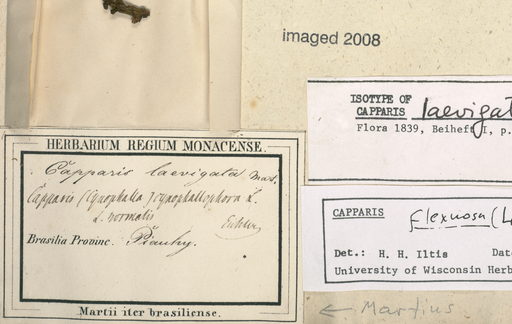 imaged 2008
ISOTYPE OF
CAPPARIS laevigat
Flora 1839, Beiheft I, p.
HERBARIUM REGIUM MONACENSE.
Capparis laevigata Mart.
Capparis (Cynophalla) cynophallophora L.
α. normalis
Eichler
Brasilia Provinc. Piauhy.
Martii iter brasiliense.
CAPPARIS flexuosa (L
Det.: H. H. Iltis Dat
University of Wisconsin Herb
← Martius